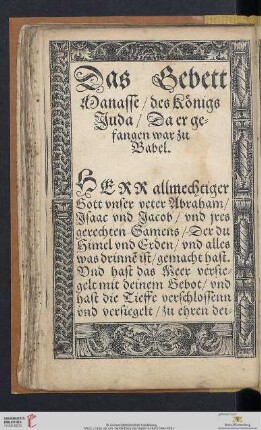 Das Gebett
Manasse / des Königs
Juda / Da er ge-
fangen war zu
Babel.
HERR allmechtiger
Gott vnser veter Abraham /
Isaac vnd Jacob / vnd jres
gerechten Samens / Der du
Himel vnd Erden / vnd alles
was drinnē ist / gemacht hast.
Vnd hast das Meer versie-
gelt mit deinem Gebot / vnd
hast die Tieffe verschlossenn
vnd versiegelt / zu ehren dei-